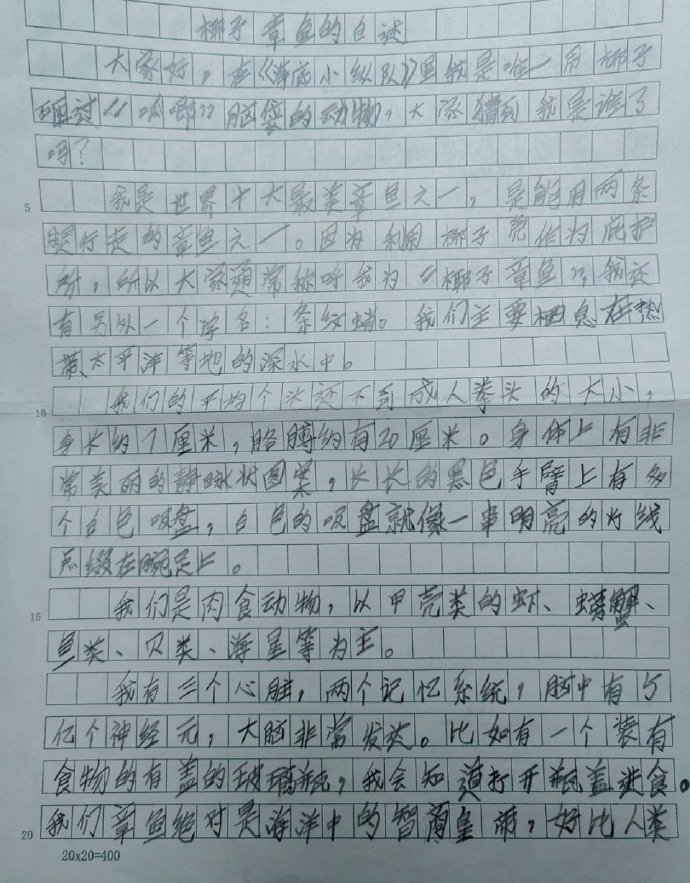 椰子章鱼的自述
大家好，在《海底小纵队》里我是唯一用椰子
砸过“呱唧”脑袋的动物，大家猜到我是谁了
吗？
5
我是世界十大最美章鱼之一，是能用两条
腿行走的章鱼之一。因为利用椰子壳作为庇护
所，所以大家通常称呼我为“椰子章鱼”，我还
有另外一个学名：条纹蛸。我们主要栖息在热
带太平洋等地的深水中。
10
我们的平均个头还不到成人拳头的大小，
身长约7厘米，胳膊约有20厘米。身体上有非
常美丽的静脉状图案，长长的黑色手臂上有多
个白色吸盘，白色的吸盘就像一串明亮的灯线
点缀在腕足上。
15
我们是肉食动物，以甲壳类的虾、螃蟹、
鱼类、贝类、海星等为主。
我有三个心脏，两个记忆系统，脑中有5
亿个神经元，大脑非常发达。比如有一个装有
食物的有盖的玻璃瓶，我会知道打开瓶盖进食。
20
我们章鱼绝对是海洋中的智商皇帝，好比人类
20x20=400